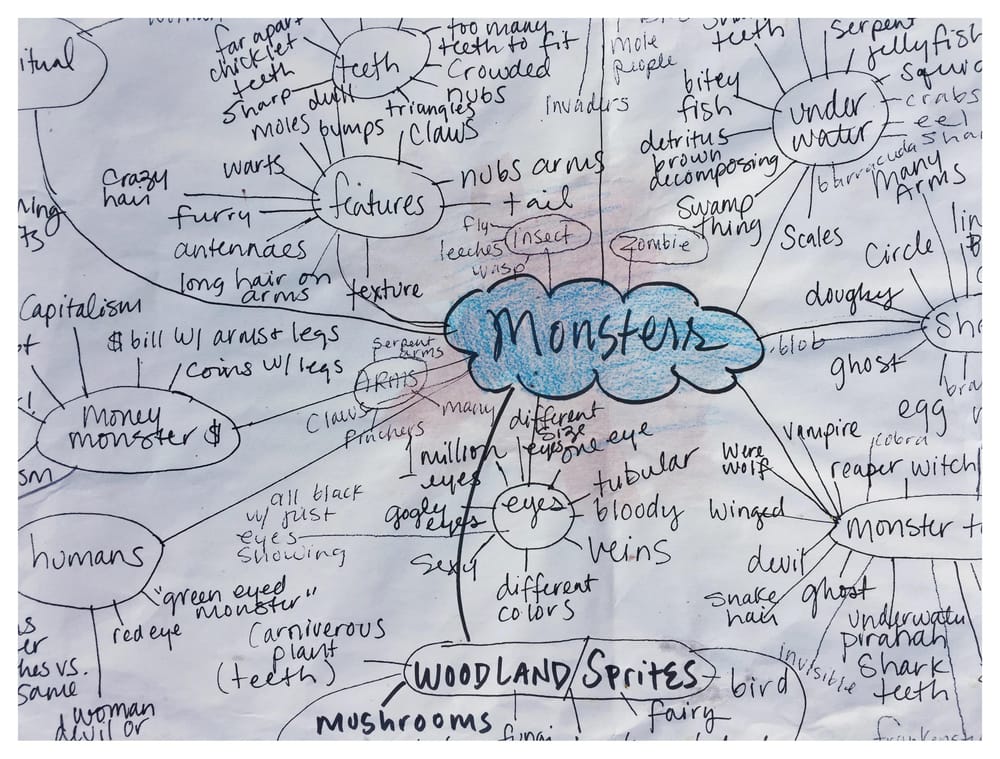 itual
far apart
chicklet
teeth
sharp
dull
teeth
too many
teeth to fit
Crowded
nubs
triangles
mole
people
Invaders
teeth
serpent
jellyfish
squid
crabs
eel
barracuda
under
water
bitey
fish
detritus
brown
decomposing
Swamp
thing
Scales
many
Arms
Circle
doughy
blob
ghost
egg
moles
bumps
claws
warts
crazy
hair
furry
antennaes
long hair on
arms
texture
features
nubs arms
tail
fly
leeches
wasp
insect
Zombie
Monsters
Capitalism
$ bill w/ arms + legs
coins w/ legs
money
monster $
sm
serpent
arms
ARMS
Claws
pinchers
many
humans
"green eyed
monster"
red eye
hes vs.
same
woman
devil or
all black
w/ just
eyes
showing
million
eyes
different
size
eyes
one eye
googly
eyes
eyes
tubular
bloody
veins
sexy
different
colors
vampire
cobra
were
wolf
reaper
witch
winged
monster t
devil
snake
hair
ghost
underwater
pirahah
Shark
teeth
invisible
Carniverous
plant
(teeth)
WOODLAND/Sprites
bird
mushrooms
fungi
fairy